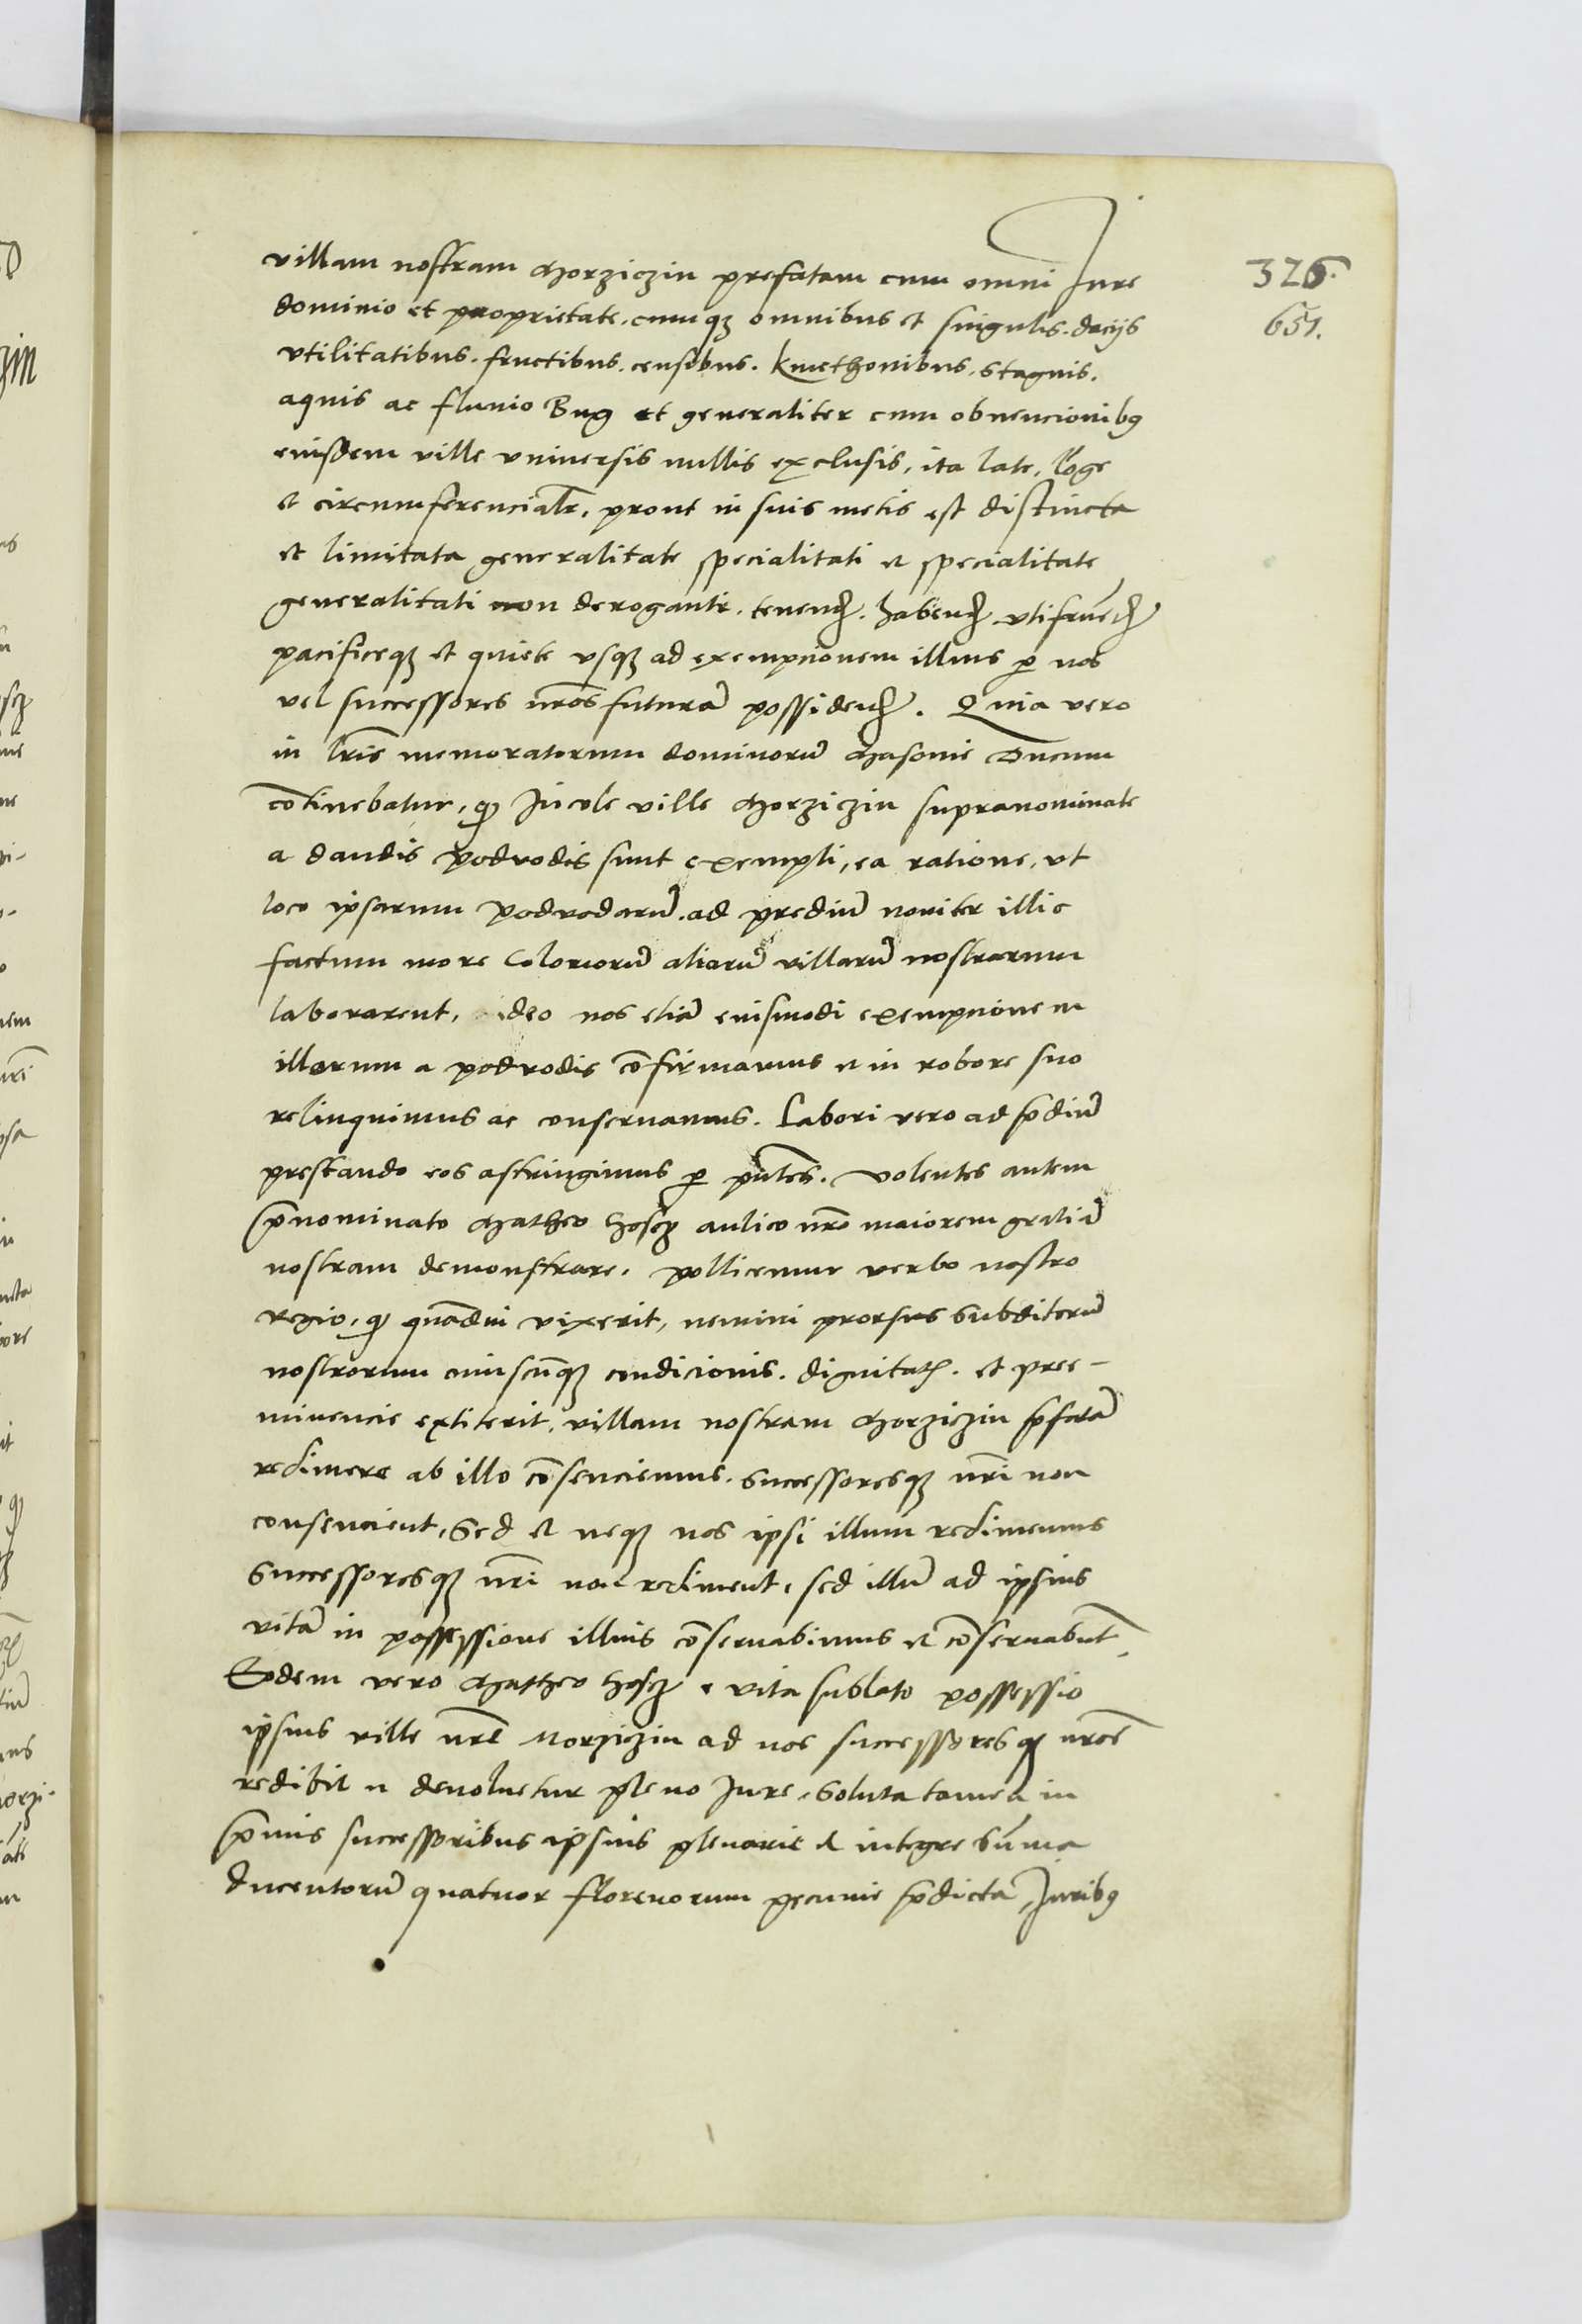 villam nostram Morziczin prefatam cum omni Jure
326.
dominio et proprietate. cumqz omnibus et singulis. dacijs
651.
vtilitatibus. fructibus. censibus. kmethonibus. stagnis.
aquis ac fluuio Bug et generaliter cum obuencionibꝰ
eiusdem ville vniuersis nullis exclusis, ita late, lõge
et circumferencialr̃, prout in suis metis est distincta
et limitata generalitate specialitati et specialitate
generalitati non deroganti. tenend̃. habend̃. vtifruend̃
pacificeqz et quiete vsqz ad exempcionem illius ꝑ nos
vel successores nr̃os futurã possidend̃. Quia vero
in lr̃is memoratorum dominorũ Masouie Ducum
cõtinebatur, ꝙ Jncole ville Morziczin supranominate
a dandis podvodis sunt exempti, ea ratione, vt
loco ipsarum podvodarũ. ad prediũ nouiter illic
factum more Colonorũ aliarũ villarũ nostrarum
laborarent, ideo nos etiã eiusmodi exempcionem
illorum a podvodis cõfirmamus et in robore suo
relinquimus ac conseruamus. Labori vero ad p̃diũ
prestando eos astringimus ꝑ pñtes. Volentes autem
p̃nominato Matheo Hoscz aulico nr̃o maiorem gratiã
nostram demonstrare. pollicemur verbo nostro
regio, ꝙ quãdiu vixerit, nemini prorsus subditorũ
nostrorum cuiuscũqz condicionis. dignitatꝭ. et pree-
minencie extiterit. villam nostram Morziczin p̃fatã
redimere ab illo cõsenciemus. successoresqz nr̃i non
consencient, Sed et neqz nos ipsi illum redimemus
Successoresqz nr̃i non rediment, sed illũ ad ipsius
vitã in possessione illius cõseruabimus et cõseruabũt.
Eodem vero Mattheo Hoscz e vita sublato possessio
ipsius ville nr̃e Morziczin ad nos successoresqz nr̃os
redibit et deuoluetur pleno Jure. Soluta tamen in
p̃mis successoribus ipsius plenarie et integre sũma
ducentorũ quatuor florenorum pecunie p̃dicta, Juribꝰ